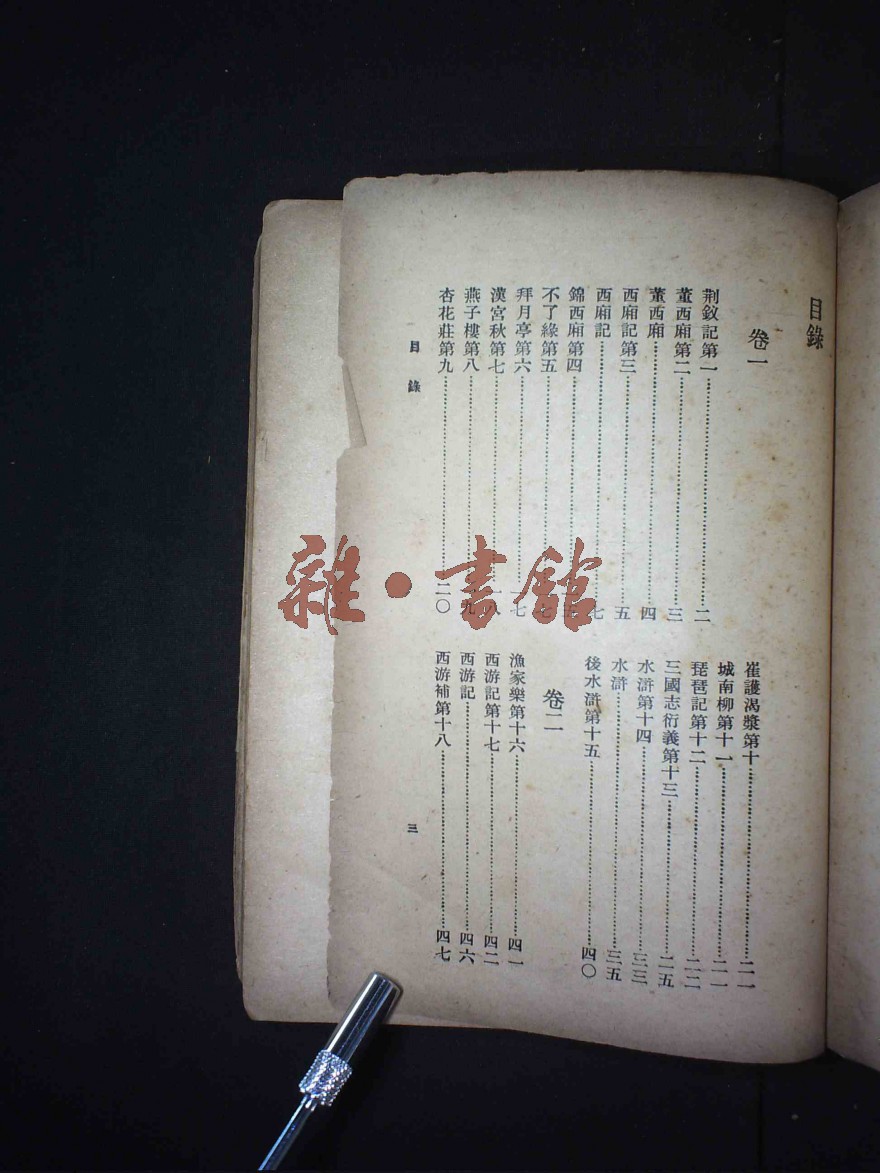 目錄
卷一
荆釵記第一……二
董西廂第二……三
董西廂……四
西廂記第三……五
西廂記……七
錦西廂第四……
不了緣第五……七
拜月亭第六……一七
漢宮秋第七……一八
燕子樓第八……一九
杏花莊第九……二〇
崔護渴漿第十……二一
城南柳第十一……二一
琵琶記第十二……二二
三國志衍義第十三……二五
水滸第十四……三三
水滸……三五
後水滸第十五……四〇
卷二
漁家樂第十六……四一
西游記第十七……四二
西游記……四六
西游補第十八……四七
目錄
三
雜·書館